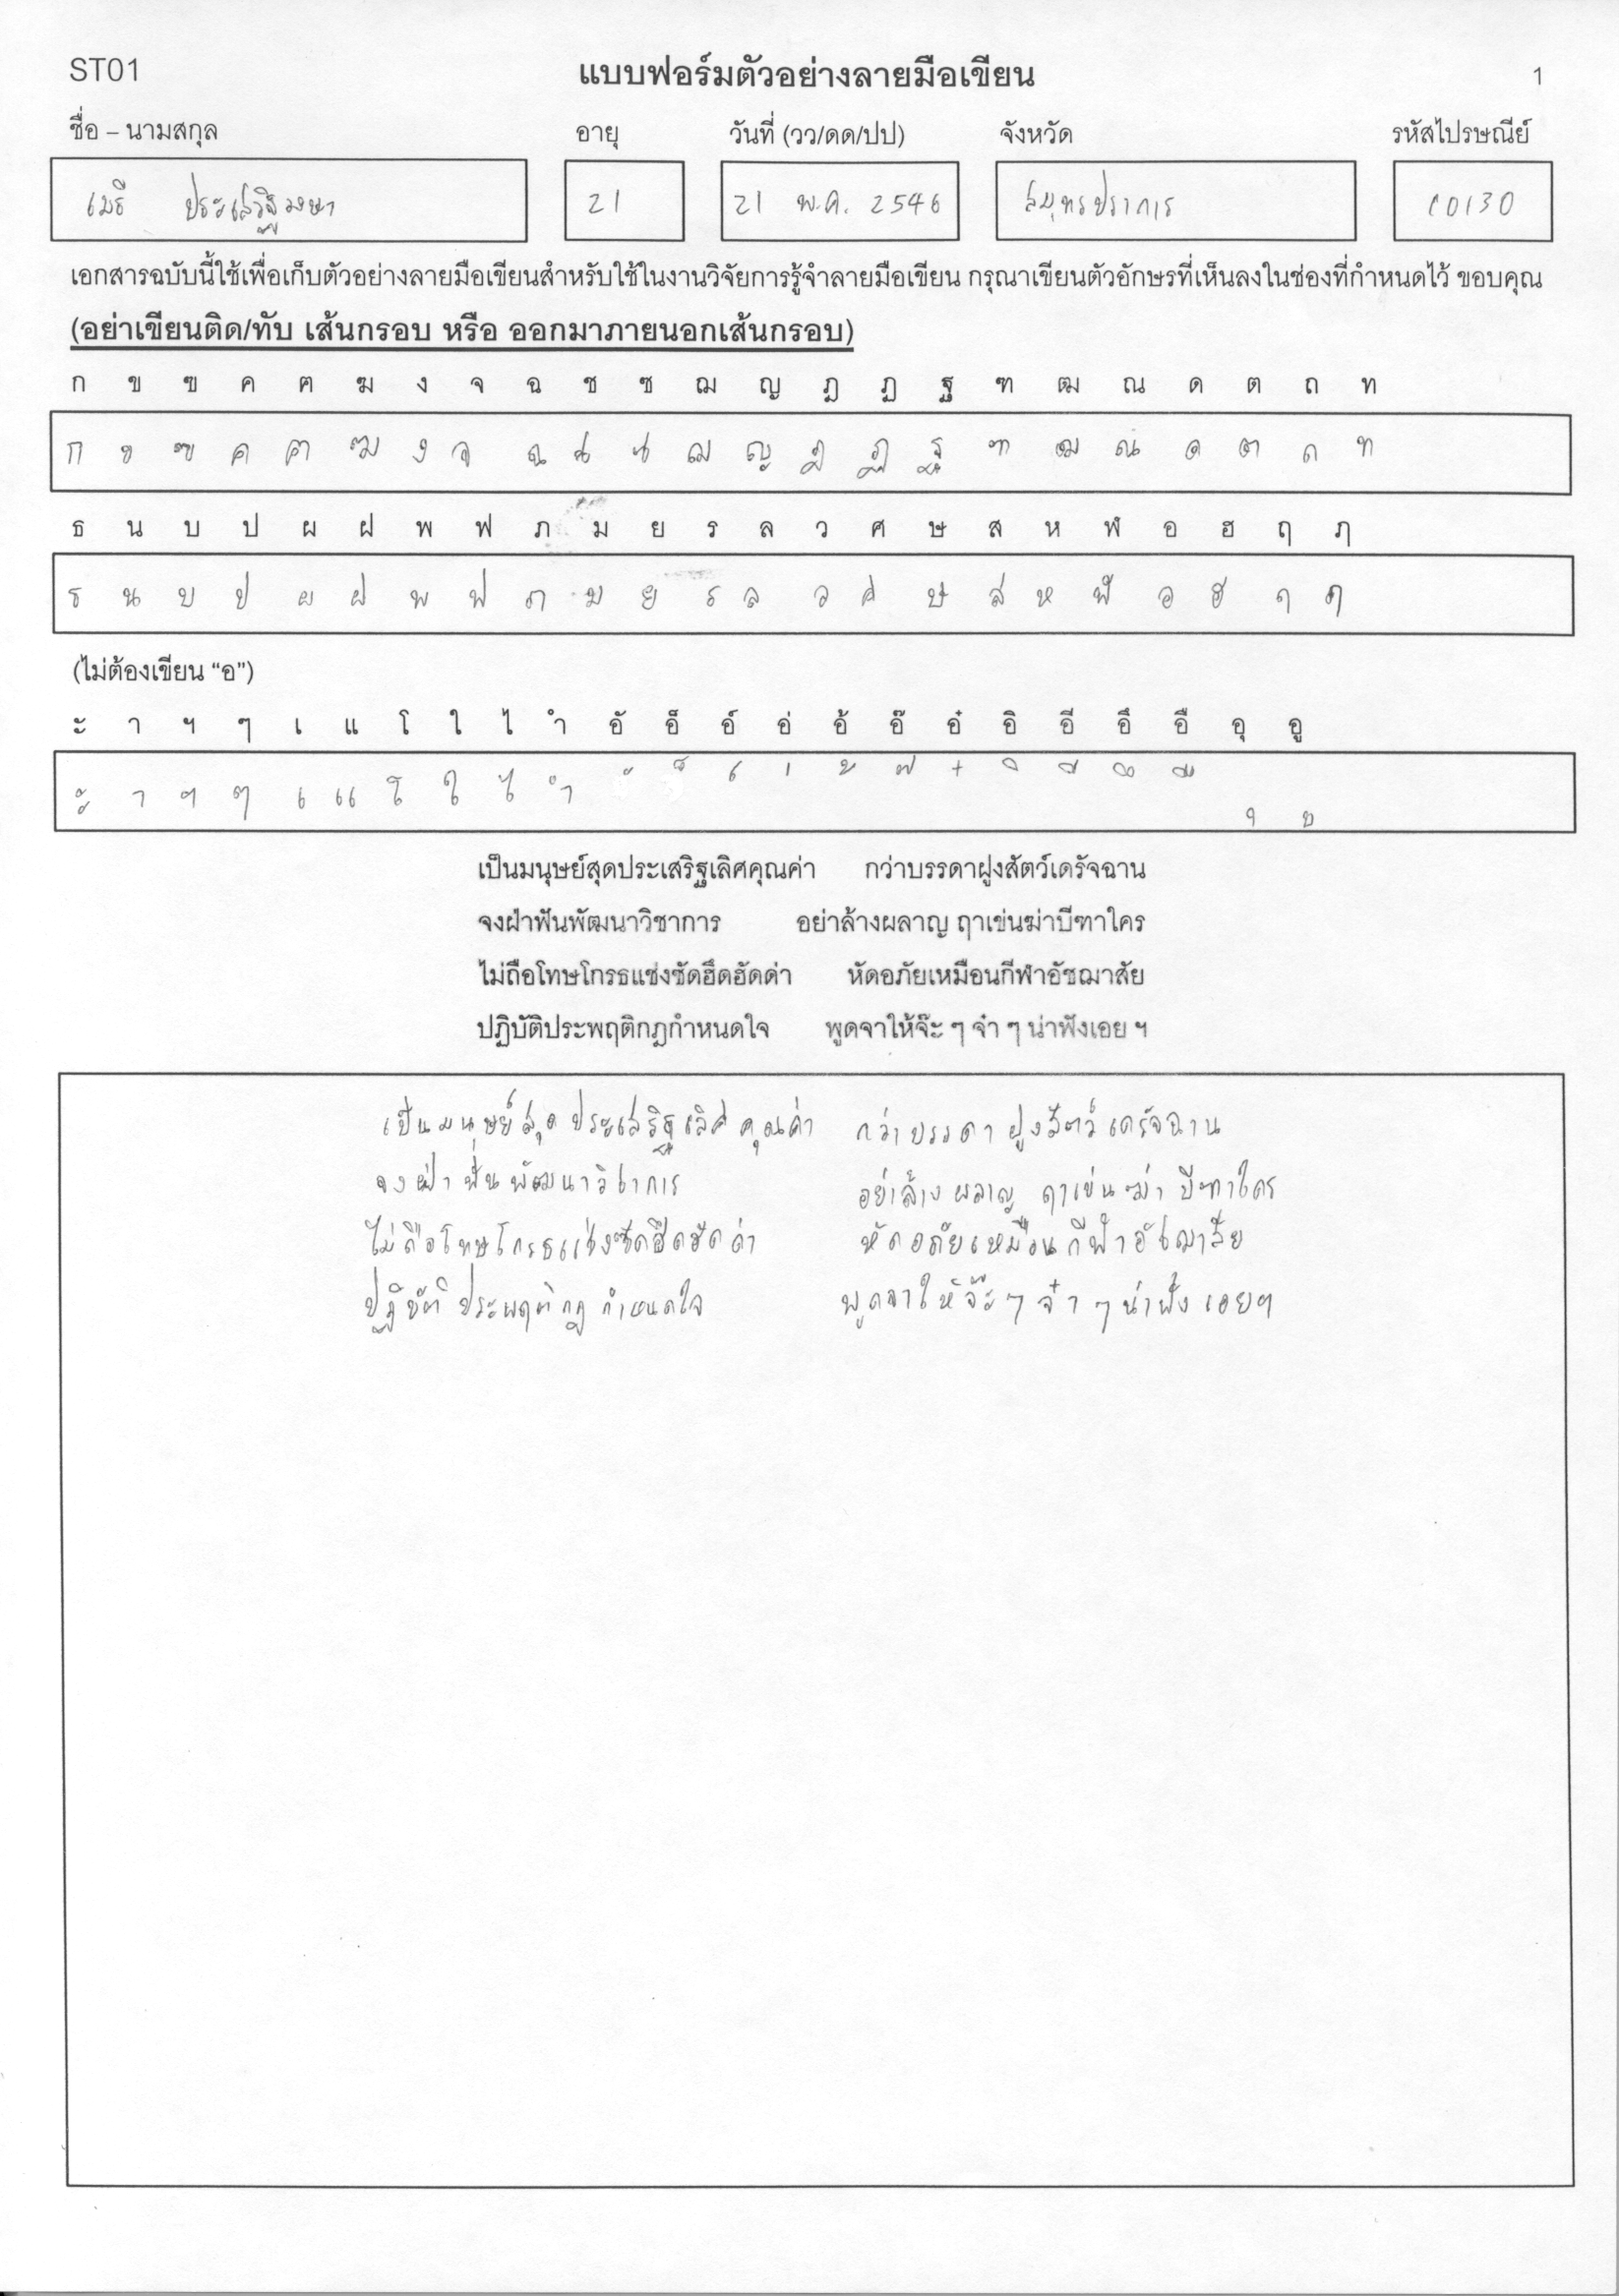 ST01 แบบฟอร์มตัวอย่างลายมือเขียน 1
ชื่อ – นามสกุล อายุ วันที่ (วว/ดด/ปป) จังหวัด รหัสไปรษณีย์
เมธี 21 21 พ.ค. 2546 สมุทรปราการ 10130
เอกสารฉบับนี้ใช้เพื่อเก็บตัวอย่างลายมือเขียนสำหรับใช้ในงานวิจัยการรู้จำลายมือเขียน กรุณาเขียนตัวอักษรที่เห็นลงในช่องที่กำหนดไว้ ขอบคุณ
(อย่าเขียนติด/ทับ เส้นกรอบ หรือ ออกมาภายนอกเส้นกรอบ)
ก ข ฃ ค ฅ ฆ ง จ ฉ ช ซ ฌ ญ ฎ ฏ ฐ ฑ ฒ ณ ด ต ถ ท
ก ข ฃ ค ฅ ฆ ง จ ฉ ช ซ ฌ ญ ฎ ฏ ฐ ฑ ฒ ณ ด ต ถ ท
ธ น บ ป ผ ฝ พ ฟ ภ ม ย ร ล ว ศ ษ ส ห ฬ อ ฮ ฤ ฦ
ธ น บ ป ผ ฝ พ ฟ ภ ม ย ร ล ว ศ ษ ส ห ฬ อ ฮ ฤ ฦ
(ไม่ต้องเขียน “อ”)
ะ า ฯ ๆ เ แ โ ใ ไ ำ อั อ็ อ์ อ่ อ้ อ๊ อ๋ อิ อี อึ อื อุ อู
ะ า ฯ ๆ เ แ โ ใ ไ ำ ั ็ ์ ่ ้ ๊ ๋ ิ ี ึ ื ุ ู
เป็นมนุษย์สุดประเสริฐเลิศคุณค่า กว่าบรรดาฝูงสัตว์เดรัจฉาน
จงฝ่าฟันพัฒนาวิชาการ อย่าล้างผลาญ ฤาเข่นฆ่าบีฑาใคร
ไม่ถือโทษโกรธแช่งซัดฮึดฮัดด่า หัดอภัยเหมือนกีฬาอัชฌาสัย
ปฏิบัติประพฤติกฎกำหนดใจ พูดจาให้จ๊ะ ๆ จ๋า ๆ น่าฟังเอย ฯ
เป็นมนุษย์สุดประเสริฐเลิศคุณค่า กว่าบรรดาฝูงสัตว์เดรัจฉาน
จงฝ่าฟันพัฒนาวิชาการ อย่าล้างผลาญ ฤาเข่นฆ่า บีฑาใคร
ไม่ถือโทษโกรธแช่งซัดฮึดฮัดด่า หัดอภัยเหมือนกีฬาอัชฌาสัย
ปฏิบัติประพฤติกฎกำหนดใจ พูดจาให้จ๊ะๆ จ๋าๆ น่าฟังเอยฯ